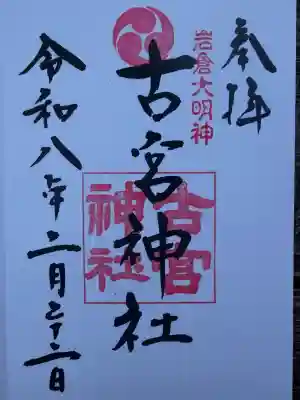 奉拝
岩倉大明神
古宮神社
古宮神社
令和八年二月二十二日